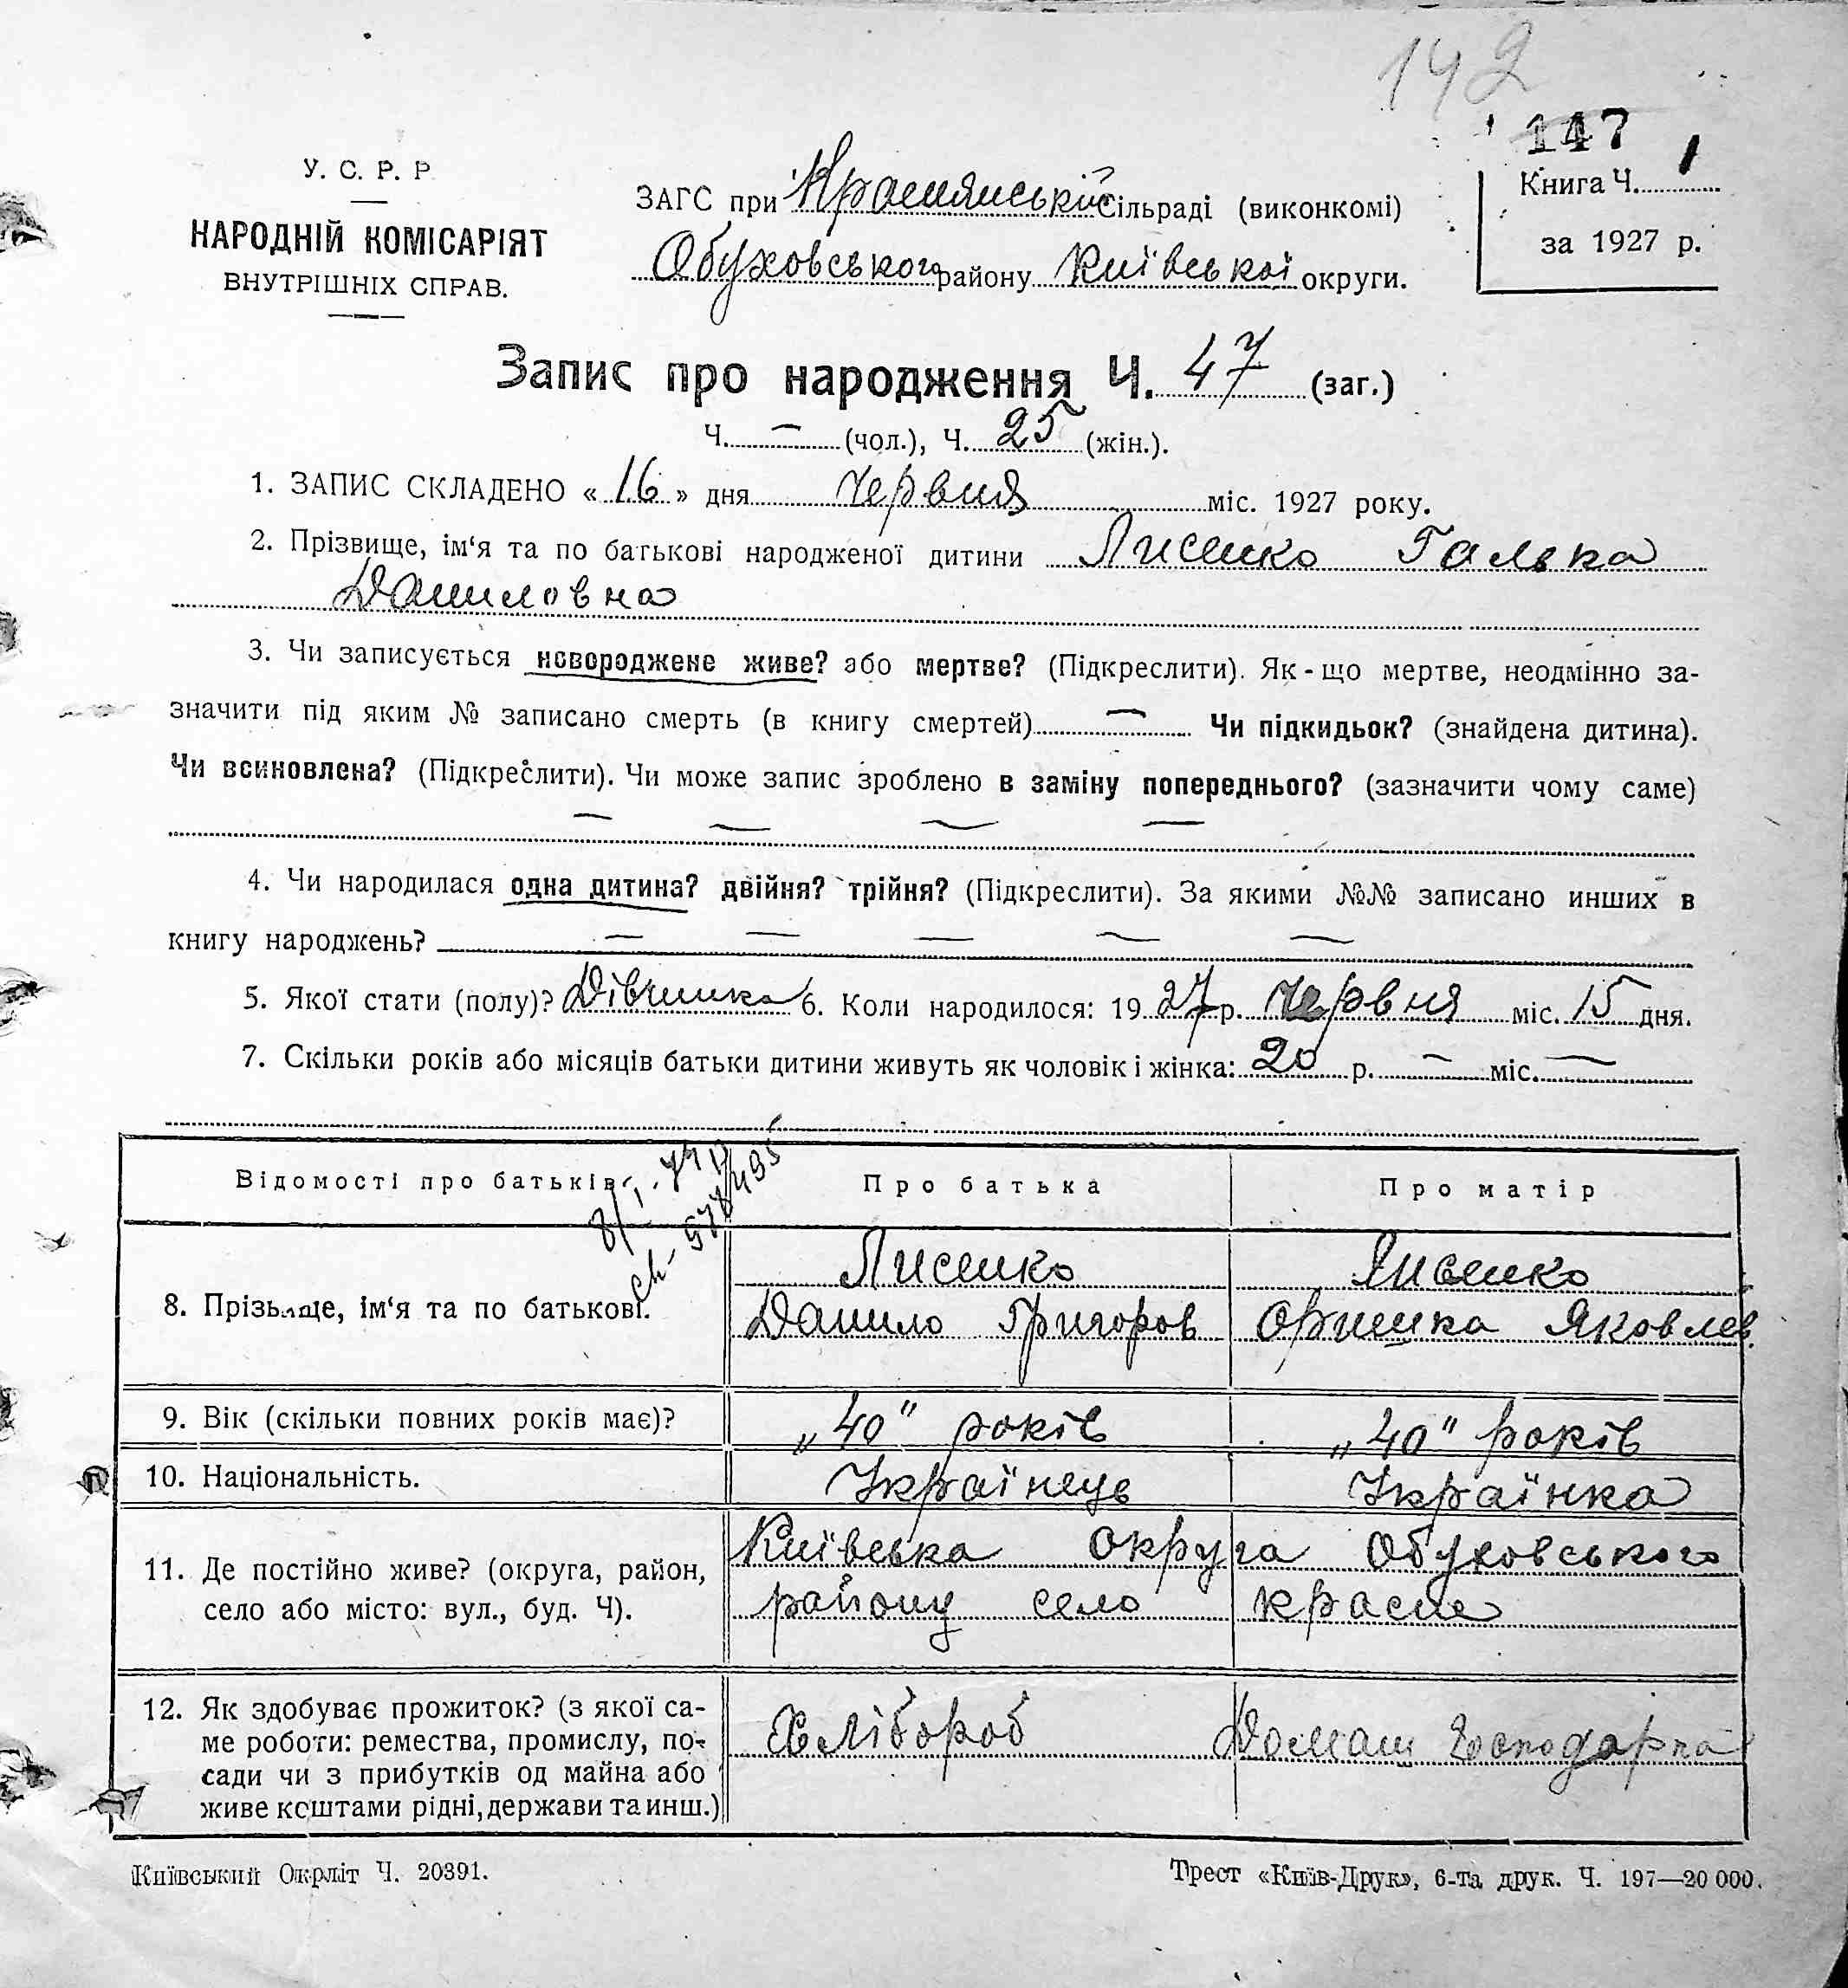 142
147
У. С. Р. Р
НАРОДНІЙ КОМІСАРІЯТ
ВНУТРІШНІХ СПРАВ.
ЗАГС при Краснянській сільраді (виконкомі)
Обуховського району Київської округи.
Книга Ч. 1
за 1927 р.
Запис про народження Ч. 47 (заг.)
Ч. — (чол.), Ч. 25 (жін.).
1. ЗАПИС СКЛАДЕНО « 16 » дня Червня міс. 1927 року.
2. Прізвище, ім‘я та по батькові народженої дитини Лисенко Галька
Даниловна
3. Чи записується новороджене живе? або мертве? (Підкреслити). Як - що мертве, неодмінно за-
значити під яким № записано смерть (в книгу смертей) — Чи підкидьок? (знайдена дитина).
Чи всиновлена? (Підкреслити). Чи може запис зроблено в заміну попереднього? (зазначити чому саме)
— — — —
4. Чи народилася одна дитина? двійня? трійня? (Підкреслити). За якими №№ записано инших в
книгу народжень? — — — — —
5. Якої стати (полу)? Дівчинка 6. Коли народилося: 19 27 р. Червня міс. 15 дня.
7. Скільки років або місяців батьки дитини живуть як чоловік і жінка: 20 р. — міс. —
Відомості про батьків. Про батька Про матір
8. Прізьвище, ім‘я та по батькові.
Лисенко Лисенко
Данило Григоров Оришка Яковлев.
9. Вік (скільки повних років має)? „40“ років „40“ років
10. Національність. Українець Українка
11. Де постійно живе? (округа, район,
село або місто: вул., буд. Ч).
Київська округа Обуховського
району село красне
12. Як здобуває прожиток? (з якої са-
ме роботи: ремества, промислу, по-
сади чи з прибутків од майна або
живе коштами рідні, держави та инш.)
Хлібороб Домаш господарка
Київський Окрліт Ч. 20391.
Трест «Київ-Друк», 6-та друк. Ч. 197—20 000.